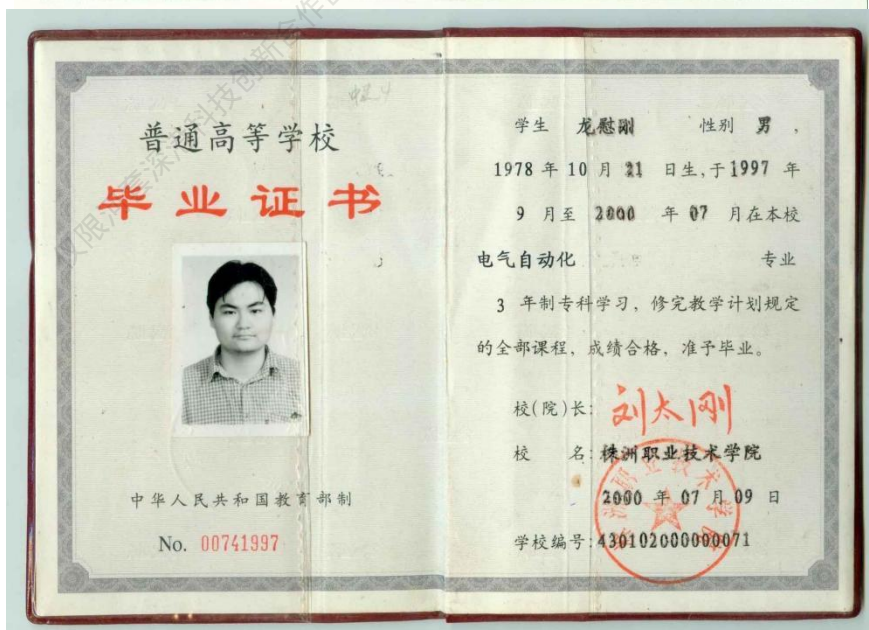 普通高等学校
毕业证书
中华人民共和国教育部制
No. 00741997
学生 龙慰刚 性别 男,
1978 年 10 月 21 日生,于1997 年
9 月至 2000 年 07 月在本校
电气自动化 专业
3 年制专科学习,修完教学计划规定
的全部课程,成绩合格,准予毕业。
校(院)长: 刘太刚
校 名: 株洲职业技术学院
2000 年 07 月 09 日
学校编号:430102000000071